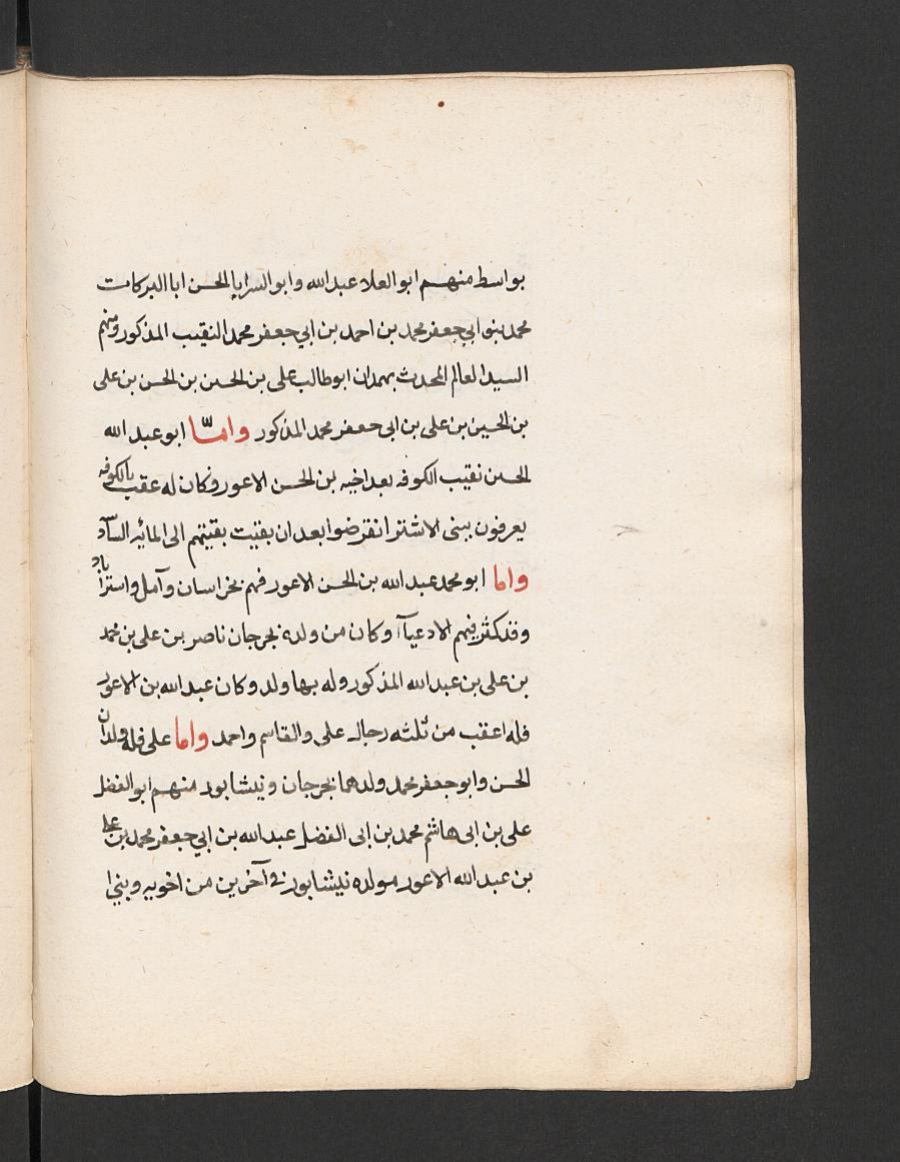 بواسط منهم ابو العلا عبد الله وابو السرايا الحسن ابا البركات
محمد بنو ابي جعفر محمد بن احمد بن ابي جعفر محمد النقيب المذكور ومنهم
السيد العالم المحدث بهمدان ابو طالب علي بن الحسين بن الحسن بن علي
بن الحسين بن علي بن ابي جعفر محمد المذكور واما ابو عبد الله
الحسين نقيب الكوفه بعد اخيه بن الحسن الاعور وكان له عقب بالكوفه
يعرفون ببنى الاشتر انقرضوا بعد ان بقيت بقيتهم الى المائيه
واما ابو محمد عبد الله بن الحسن الاعور فهم بخراسان وآمل واستراباد
وقد كثر فيهم الادعيآ وكان من ولده بجرجان ناصر بن علي بن محمد
بن علي بن عبد الله المذكور وله بها ولد وكان عبد الله بن الاعور
فله اعقب من ثلثه رجال علي والقاسم واحمد واما علي فله ولدان
الحسن وابو جعفر محمد ولدهما بجرجان ونيشابور منهم ابو الفضل
علي بن ابي هاشم محمد بن ابى الفضل عبد الله بن ابي جعفر محمد بن علي
بن عبد الله الاعور مولده نيشابور في آخرين من اخويه وبني